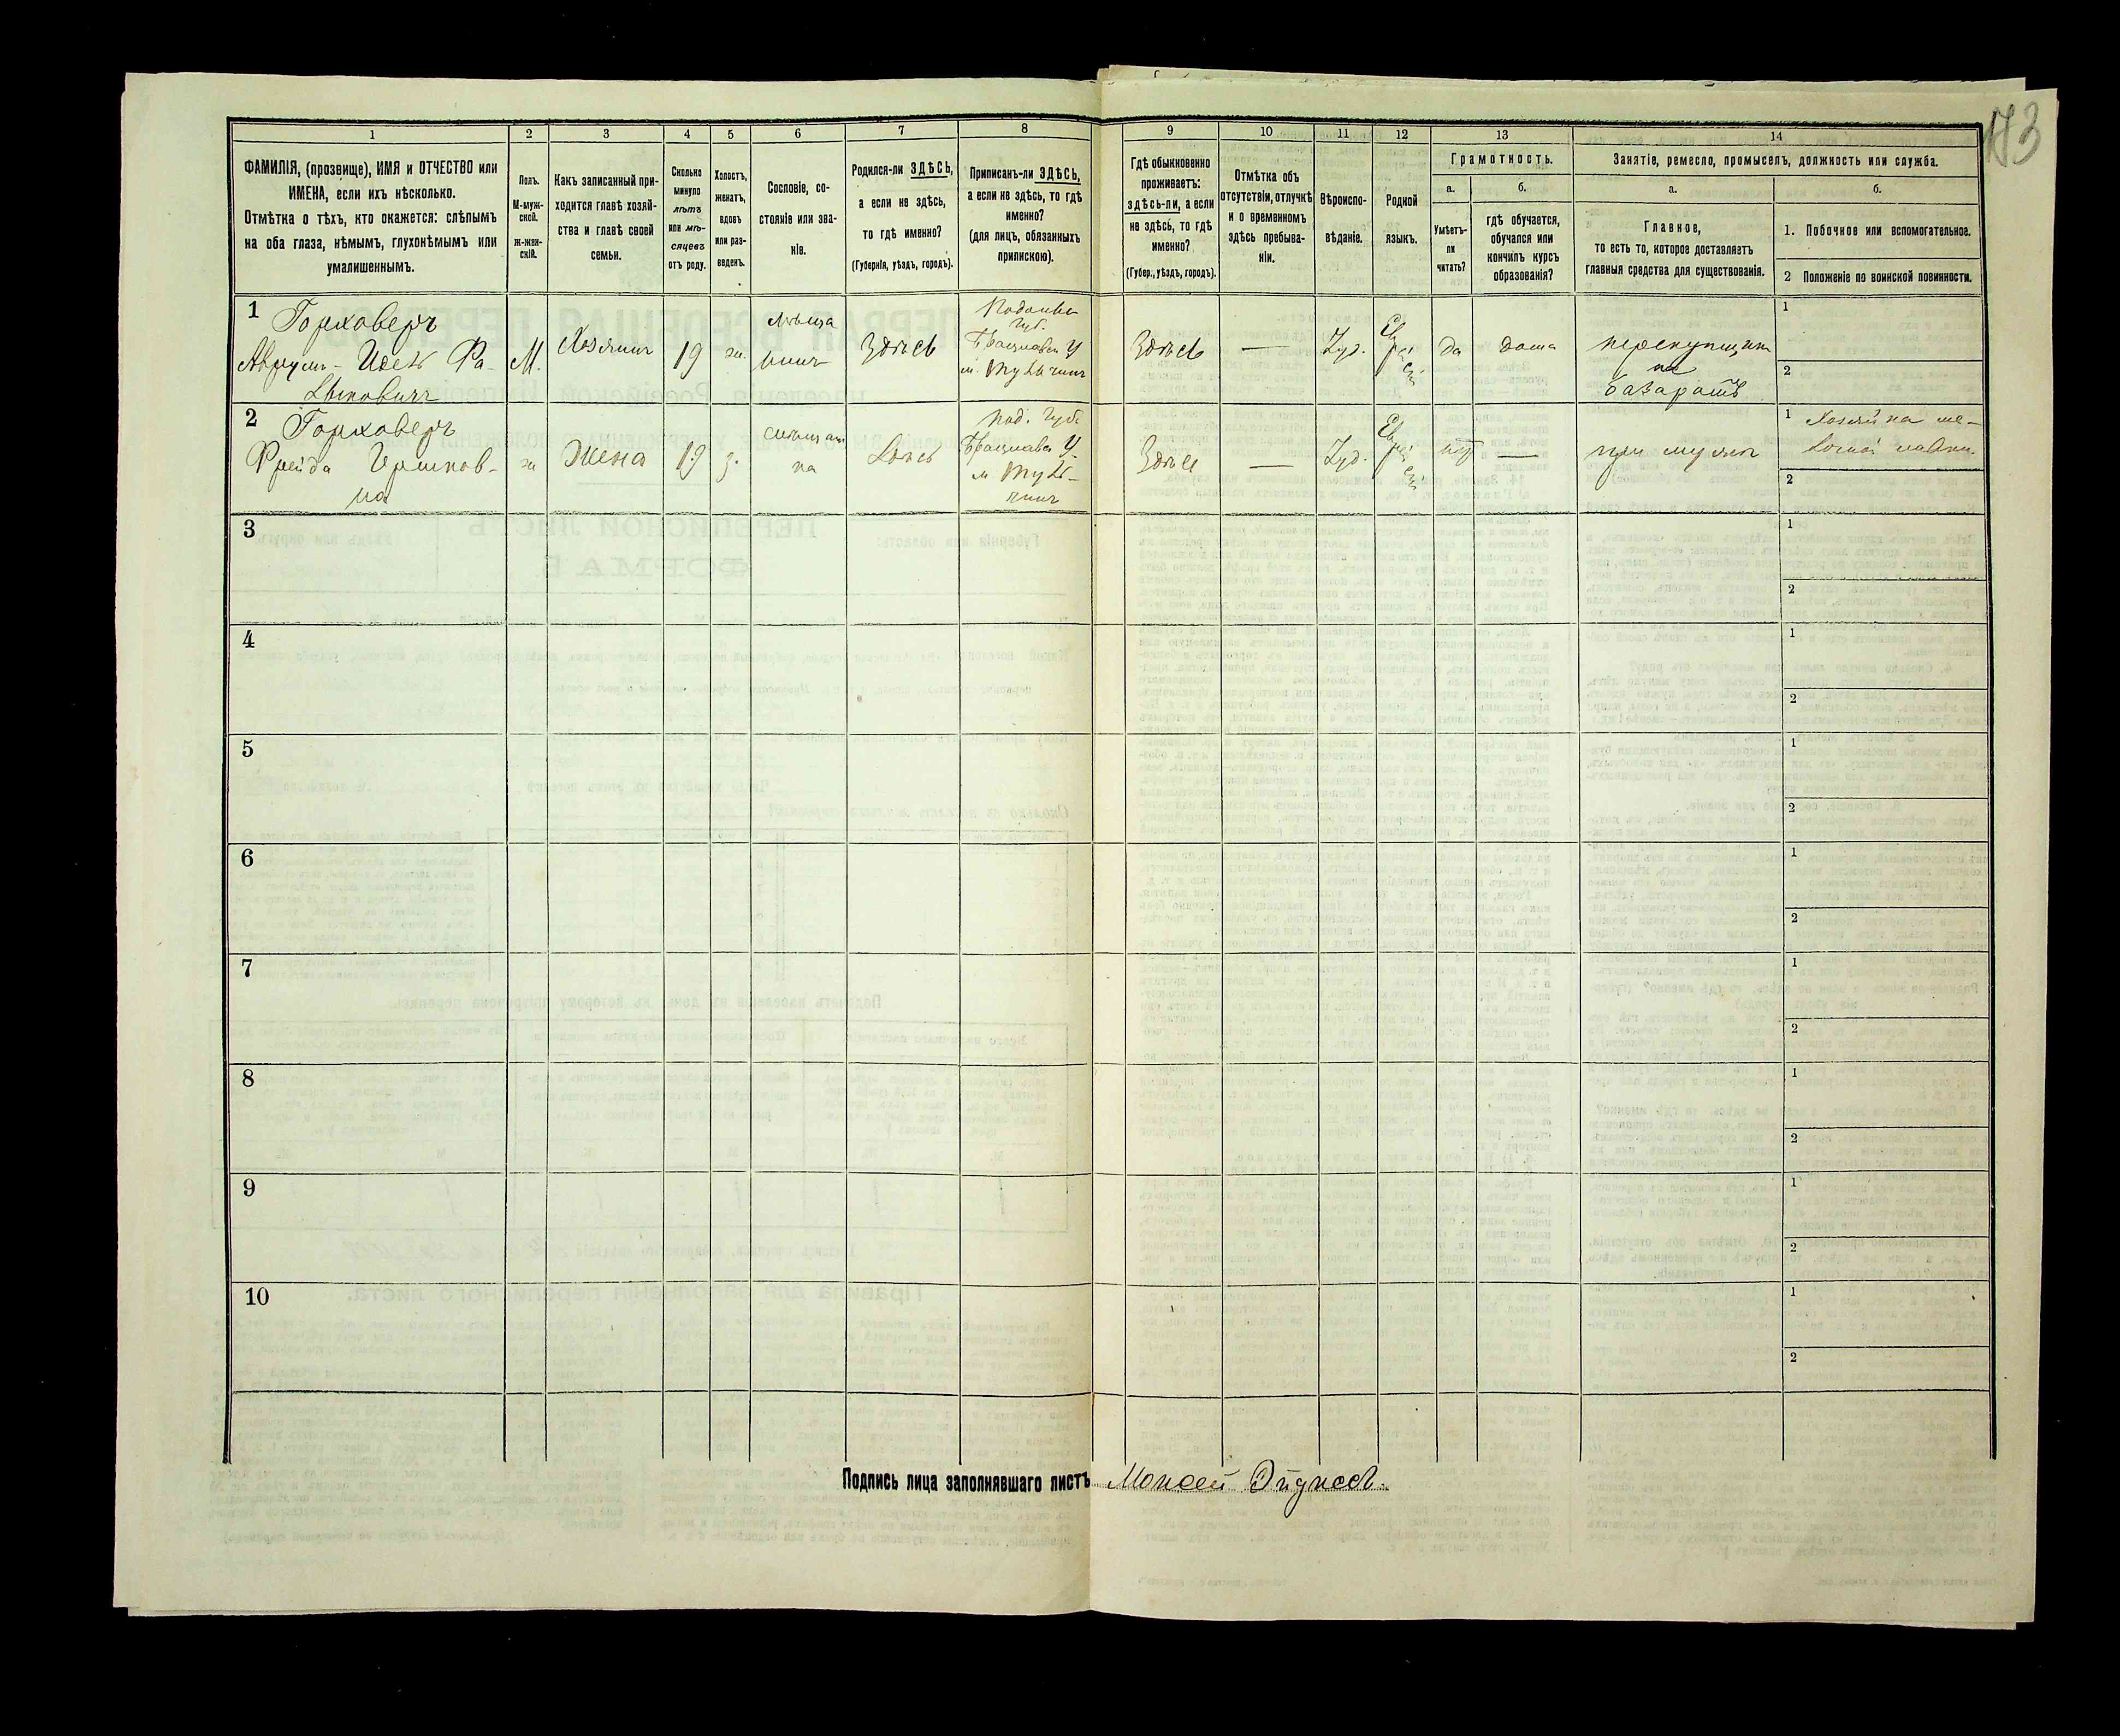 173
1
2
3
4
5
6
7
8
9
10
11
12
13
14
ФАМИЛІЯ, (прозвище), ИМЯ и ОТЧЕСТВО или
ИМЕНА, если ихъ нѣсколько.
Отмѣтка о тѣхъ, кто окажется: слѣпымъ
на оба глаза, нѣмымъ, глухонѣмымъ или
умалишеннымъ.
Полъ.
М-муж-
ской.
ж-жен-
скій.
Какъ записанный при-
ходится главѣ хозяй-
ства и главѣ своей
семьи.
Сколько
минуло
лѣтъ
или мѣ-
сяцевъ
отъ роду.
Холостъ,
женатъ,
вдовъ
или раз-
веденъ.
Сословіе, со-
стояніе или зва-
ніе.
Родился-ли ЗДѢСЬ,
а если не здѣсь,
то гдѣ именно?
(Губернія, уѣздъ, городъ).
Приписанъ-ли ЗДѢСЬ,
а если не здѣсь, то гдѣ
именно?
(для лицъ, обязанныхъ
припискою).
Гдѣ обыкновенно
проживаетъ:
здѣсь-ли, а если
не здѣсь, то гдѣ
именно?
(Губер., уѣздъ, городъ).
Отмѣтка объ
отсутствіи, отлучкѣ
и о временномъ
здѣсь пребыва-
ніи.
Вѣроиспо-
вѣданіе.
Родной
языкъ.
Грамотность.
а.
б.
Умѣетъ-
ли
читать?
гдѣ обучается,
обучался или
кончилъ курсъ
образованія?
Занятіе, ремесло, промыселъ, должность или служба.
а.
б.
Главное,
то есть то, которое доставляетъ
главныя средства для существованія.
1. Побочное или вспомогательное.
2 Положеніе по воинской повинности.
1
Горховеръ
М.
Хозяинъ
19
ж.
Здѣсь
Здѣсь
—
Іуд.
да
дома
перекупщикъ
на
базарѣ
1
2
2
Горховеръ
Фрейда
на
ж
Жена
19
з.
Здѣсь
Под. Губ.
Здѣсь
—
Іуд.
нѣтъ
—
при мужѣ
1 Хозяйка ме-
лочной лавки.
2
3
1
2
4
1
2
5
1
2
6
1
2
7
1
2
8
1
2
9
1
2
10
1
2
Подпись лица заполнявшаго листъ Моисей